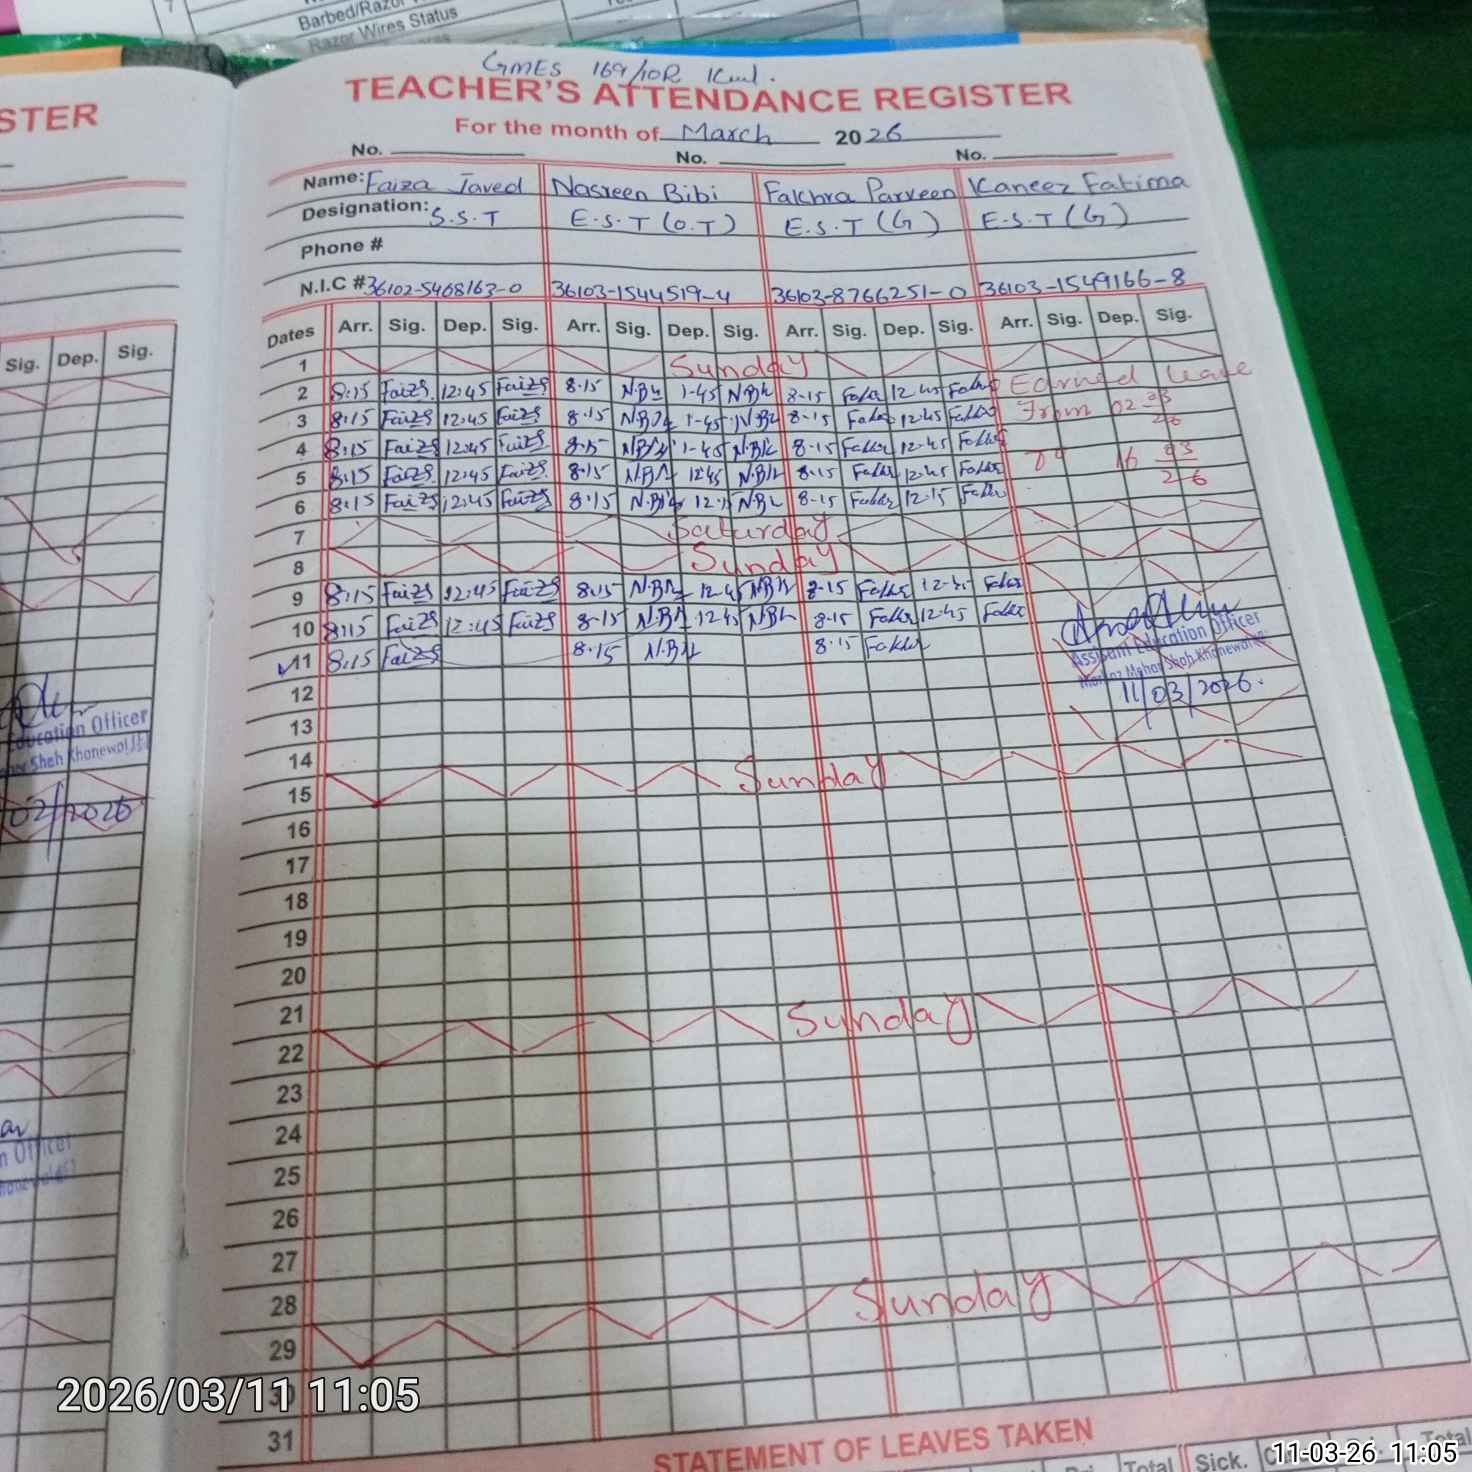 Barbed/Razor
Razor Wires Status
STER
GMES 169/10R Kwl.
TEACHER'S ATTENDANCE REGISTER
For the month of March 2026
No. No. No.
Name: Faiza Javed Nasreen Bibi Fakhra Parveen Kaneez Fatima
Designation: S.S.T E.S.T (O.T) E.S.T (G) E.S.T (G)
Phone #
N.I.C # 36102-5468163-0 36103-1544519-4 36103-8766251-0 36103-1549166-8
Dates Arr. Sig. Dep. Sig. Arr. Sig. Dep. Sig. Arr. Sig. Dep. Sig. Arr. Sig. Dep. Sig.
Sig. Dep. Sig.
1 Sunday
2 8:15 Faiza 12:45 Faiza 8.15 1-45 8-15 12.45 Earned leave
3 8:15 Faiza 12:45 Faiza 8.15 1-45 8-15 12.45 From 02 03 26
4 8:15 Faiza 12:45 Faiza 8.15 1-45 8-15 12-45
5 8:15 Faiza 12:45 Faiza 8.15 1245 8-15 12.45 To 16 03 26
6 8:15 Faiza 12:45 Faiza 8.15 8-15 12.15
7 Saturday
8 Sunday
9 8:15 Faiza 12:45 Faiza 8.15 12-45 8-15
10 8:15 Faiza 12:45 Faiza 8-15 1245 8.15 12.45
Assistant Education Officer
Markaz Mehar Shah Khanewal
11 8:15 Faiza 8.15 8.15
11/03/2026.
12
13
14
15 Sunday
16
17
18
19
20
21
22 Sunday
23
24
25
26
27
28
29 Sunday
30
31
Education Officer
Sheh Khanewal
02/2026
STATEMENT OF LEAVES TAKEN
Total Sick. Total
2026/03/11 11:05
11-03-26 11:05